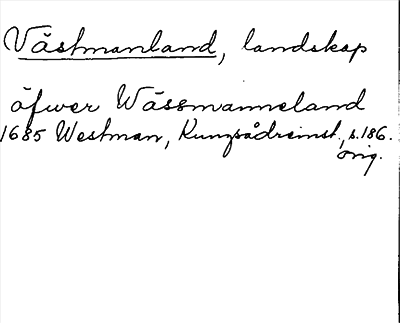 Västmanland, landskap
öfwer Wässmanneland
1685 Westman, Kungsådreinst., s. 186.
orig.